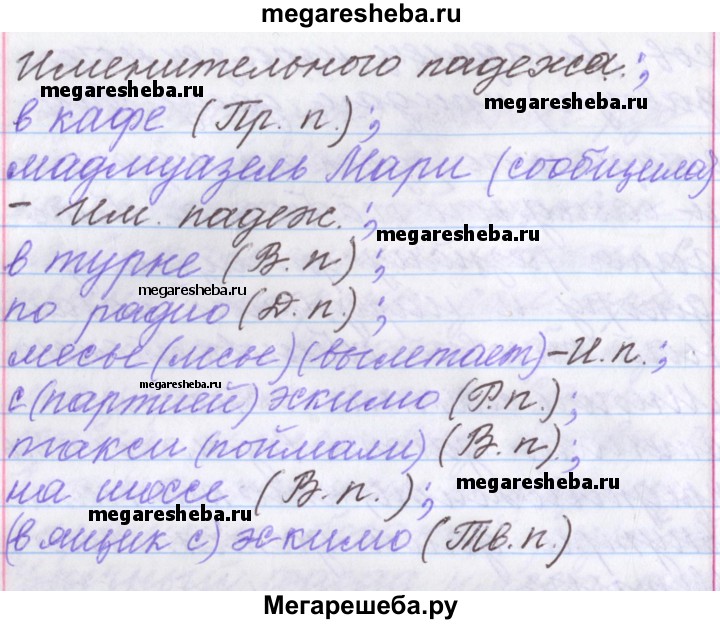 megaresheba.ru
Именительного падежа.;
megaresheba.ru
в кафе (Пр. п.);
мадмуазель Мари (сообщила)
- Им. падеж.;
megaresheba.ru
в турне (В. п);
megaresheba.ru
по радио (Д. п.);
месье (месье) (вылетает) – И. п.;
megaresheba.ru
с (партией) эскимо (Р. п.);
такси (поймали) (В. п.);
на шоссе (В. п.);
megaresheba.ru
megaresheba.ru
(в ящик с) эскимо (Тв. п.)
Мегарешеба.ру